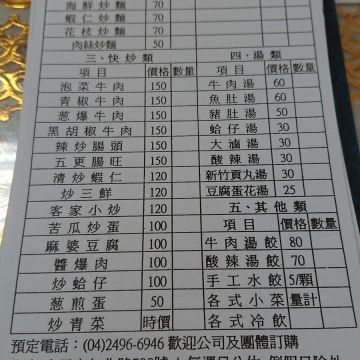 海鮮炒麵 70
蝦仁炒麵 70
花枝炒麵 70
肉絲炒麵 50
三、快炒類
項目 價格 數量
泡菜牛肉 150
青椒牛肉 150
葱爆牛肉 150
黑胡椒牛肉 150
辣炒腸頭 150
五更腸旺 150
清炒蝦仁 120
炒三鮮 120
客家小炒 120
苦瓜炒蛋 100
麻婆豆腐 100
醬爆肉 100
炒蛤仔 100
葱煎蛋 50
炒青菜 時價
四、湯類
項目 價格 數量
牛肉湯 60
魚肚湯 60
豬肚湯 50
蛤仔湯 30
大滷湯 30
酸辣湯 30
新竹貢丸湯 30
豆腐蛋花湯 25
五、其他類
項目 價格 數量
牛肉湯餃 80
酸辣湯餃 70
手工水餃 5/顆
各式小菜 量計
各式冷飲
預定電話：(04)2496-6946 歡迎公司及團體訂購